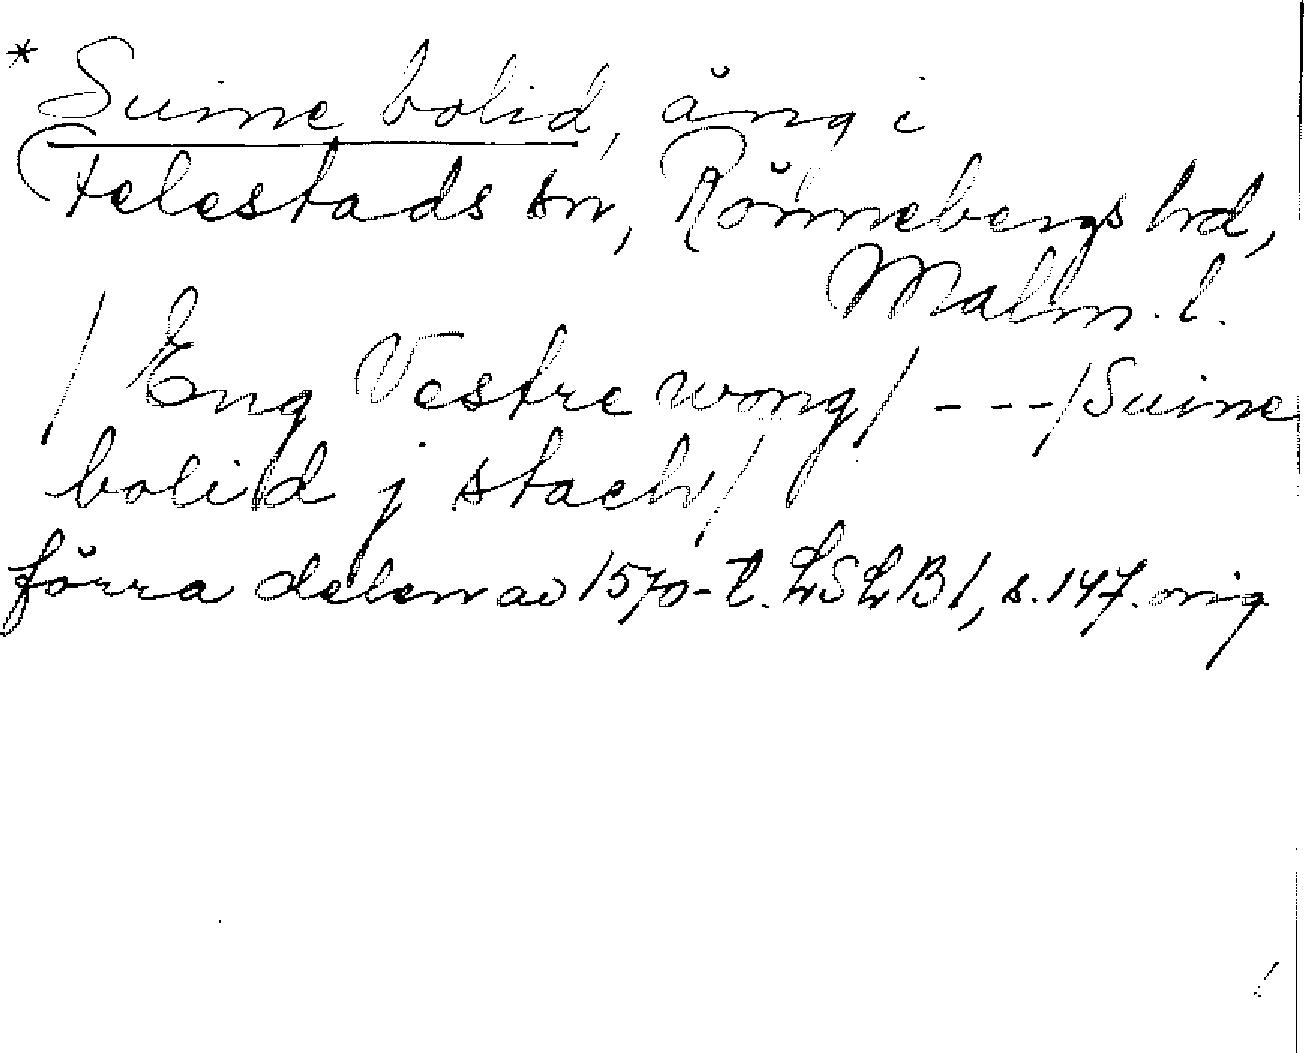 * Suine bolid, äng i
Felestads sn, Rönnebergs hd,
Malm. l.
/ Eng Vestre wong / - - - / Suine
bolid j stach /
förra delen av 1570-t. LSLB 1, s. 147. orig